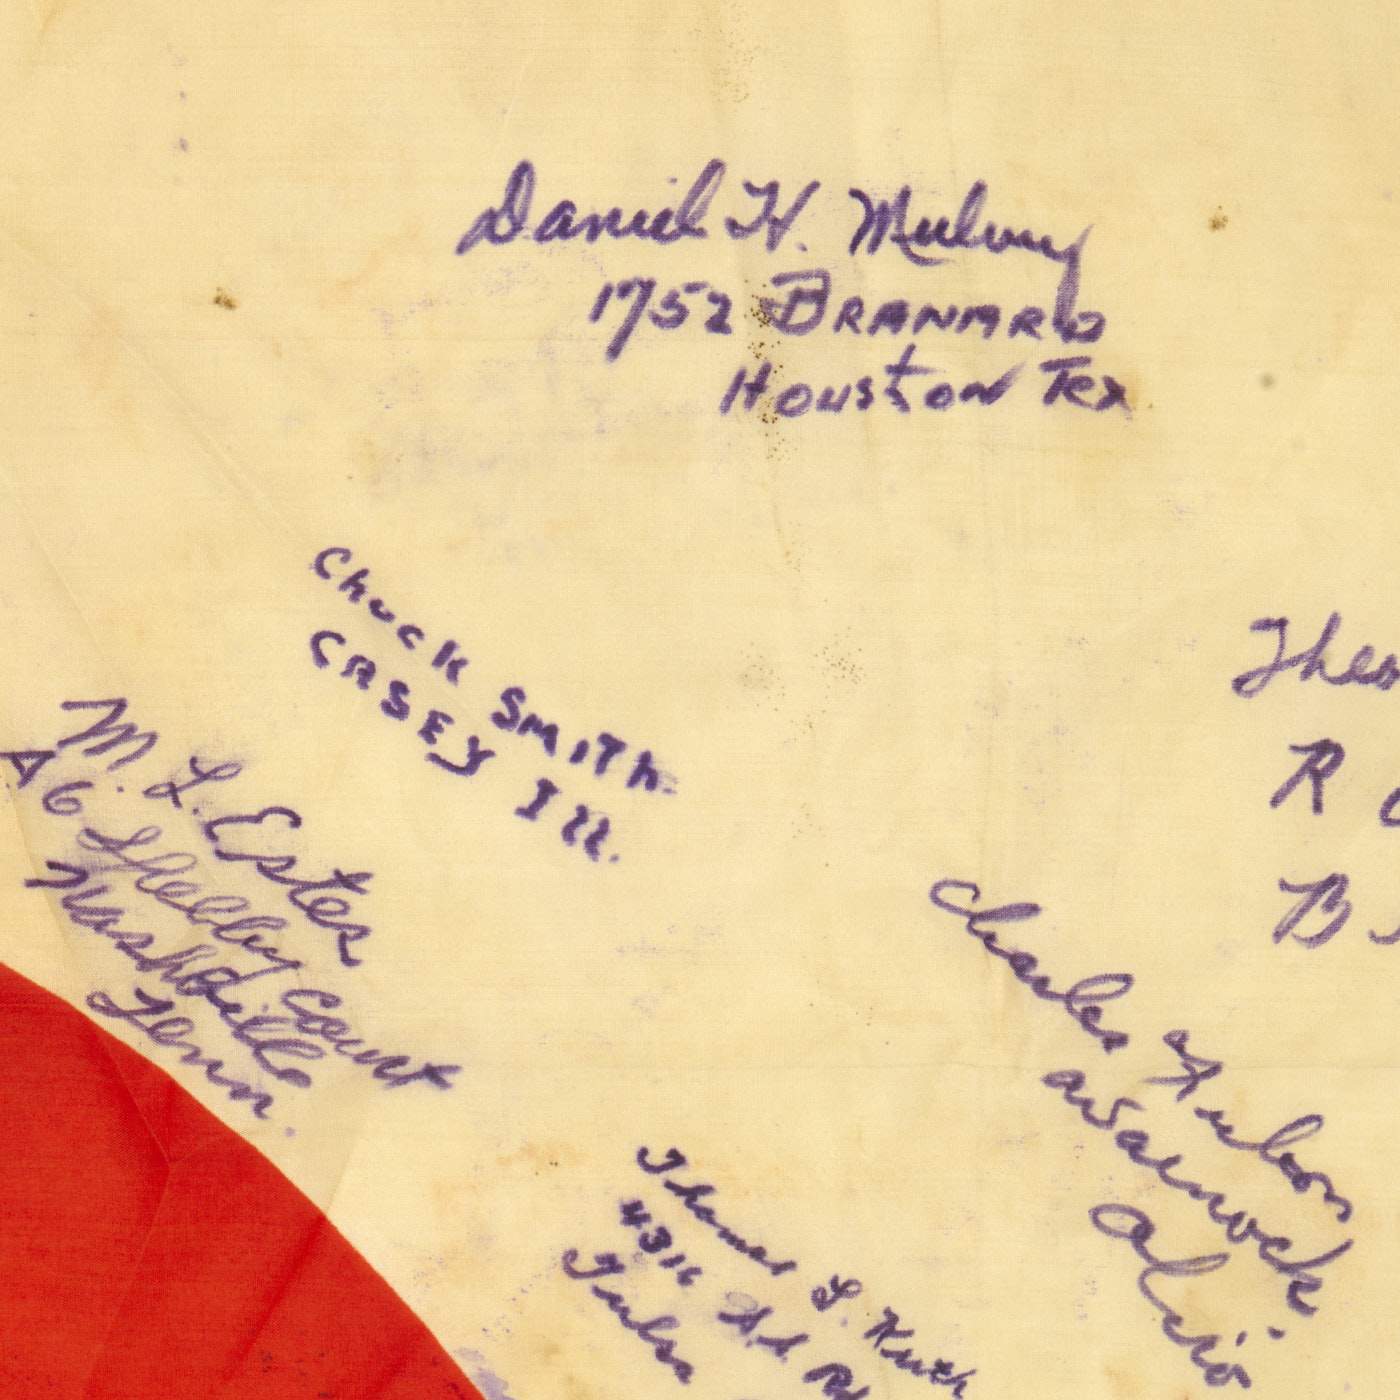 Daniel H. Mulvey
1752 BRANARD
Houston Tex
Chuck SMITH.
CASEY Ill.
M. L. Estes
A6 Shelby Court
Nashville
Tenn.
Theo
R
B
Charles
Warnock.
Ohio
Thomas L.
4316
Tulsa